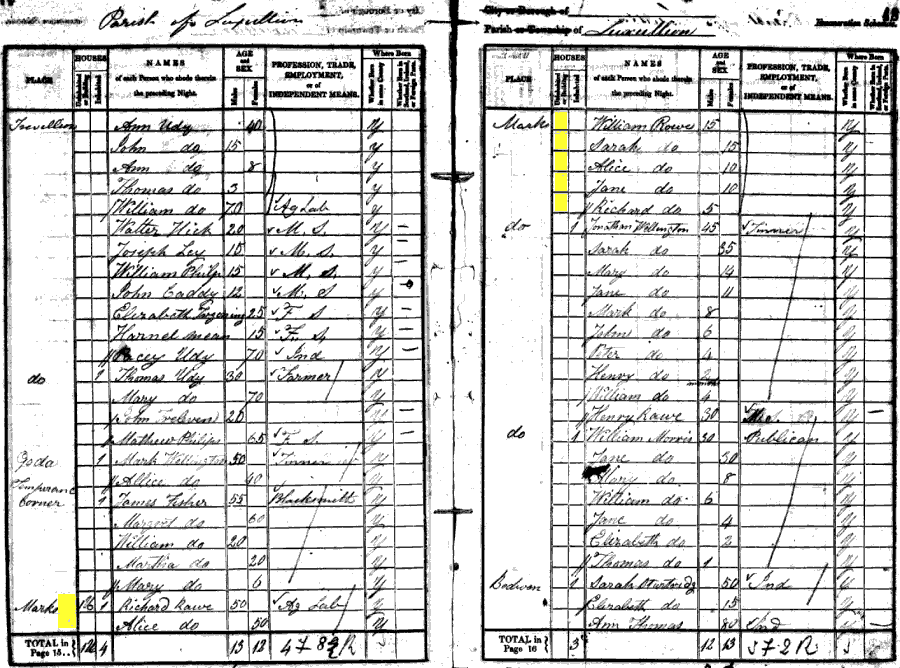 Parish of Luxullion
PLACE
HOUSES
Uninhabited or Building
Inhabited
NAMES
of each Person who abode therein
the preceding Night.
AGE
and
SEX
Males
Females
PROFESSION, TRADE,
EMPLOYMENT,
or of
INDEPENDENT MEANS.
Where Born
Whether Born in same County
Trevellion Ann Udy 40 y
John do 15 y
Ann do 8 y
Thomas do 3 y
William do 70 Ag Lab y
Walter Hick 20 M. S. y –
Joseph Ley 15 M. S. y –
William Philp 15 M. S. y –
John Caddy 12 M. S y
Elizabeth 25 F S y –
Harriet 15 F. S y –
Udy 70 Ind y –
do 1 Thomas Udy 30 Farmer y
Mary do 70 y
John Treleven 20 y –
Mathew Philips 65 F. S y –
Goda 1 Mark Wellington 50 Tinner y
Allice do 40 y
Temperance
Corner 1 James Fisher 55 Blacksmith y
Margret do 60 y
William do 20 y
Martha do 20 y
Mary do 6 y
Marks 126 1 Richard Rawe 50 Ag Lab y
Alice do 50 y
TOTAL in
Page 15 126 4 13 12
City or Borough of
Parish or Township of Luxullion
Enumeration Schedule.
PLACE
HOUSES
Uninhabited or Building
Inhabited
NAMES
of each Person who abode therein
the preceding Night.
AGE
and
SEX
Males
Females
PROFESSION, TRADE,
EMPLOYMENT,
or of
INDEPENDENT MEANS.
Where Born
Whether Born in same County
Marks William Rowe 15 y
Sarah do 15 y
Alice do 10 y
Jane do 10 y
Richard do 5 y
do 1 Jonathan Wellington 45 Tinner y
Sarah do 35 y
Mary do 14 y
Jane do 11 y
Mark do 8 y
John do 6 y
Peter do 4 y
Henry do 2 y
months
William do 4 y
Henry Rawe 30 y –
do 1 William Morris 30 Publican y
Jane do 30 y
Mary do 8 y
William do 6 y
Jane do 4 y
Elizabeth do 2 y
Thomas do 1 y
Bodwen 1 Sarah 50 Ind y
Elizabeth do 15 y
Ann Thomas 80 Ind y –
TOTAL in
Page 16 3 12 13